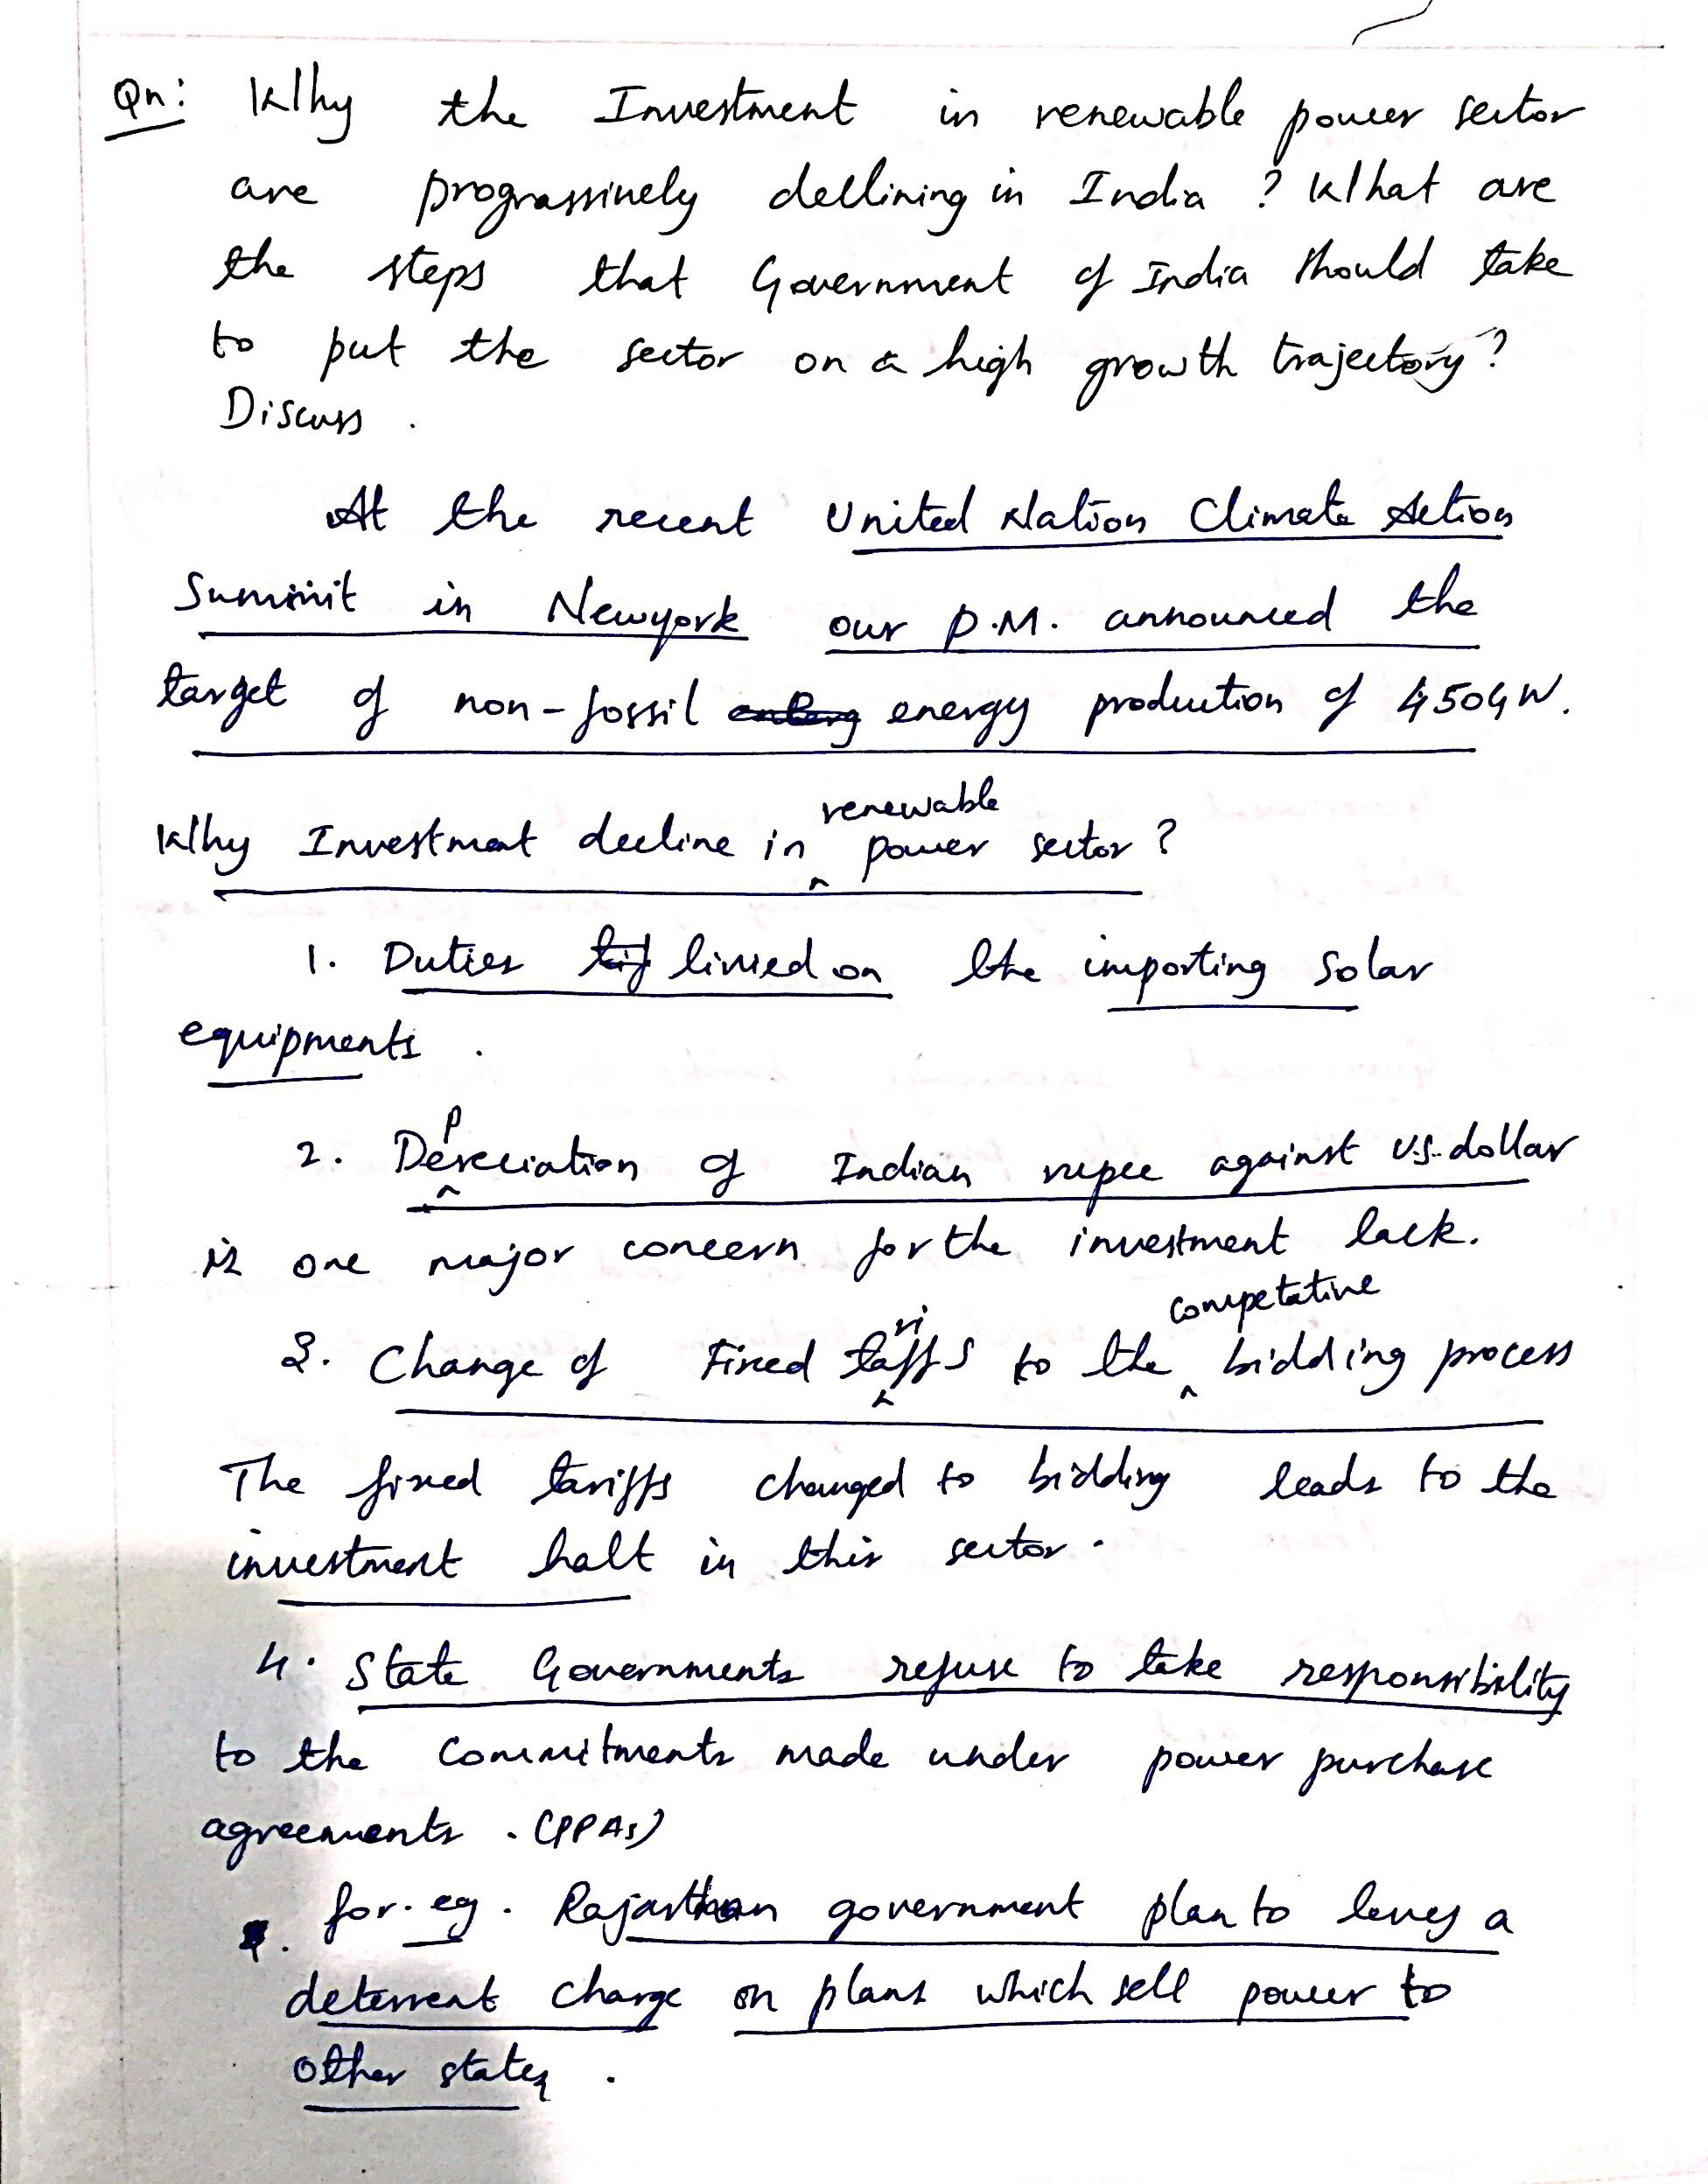 Qn: Why the Investment in renewable power sector
are prograssively declining in India ? What are
the steps that Government of India should take
to put the sector on a high growth trajectory?
Discuss .
At the recent United Nation Climate Action
Summit in Newyork our P.M. announced the
target of non-fossil energy production of 450GW.
Why Investment decline in renewable power sector ?
1. Duties livied on the importing solar
equipments .
2. Depreciation of Indian rupee against U.S. dollar
is one major concern for the investment lack.
3. Change of Fixed tariffs to the competative bidding process
The fixed tariffs changed to bidding leads to the
investment halt in this sector.
4. State Governments refuse to take responsibility
to the commitments made under power purchase
agreements . (PPAs)
for. eg. Rajasthan government plan to levey a
deterrent charge on plans which sell power to
other states .